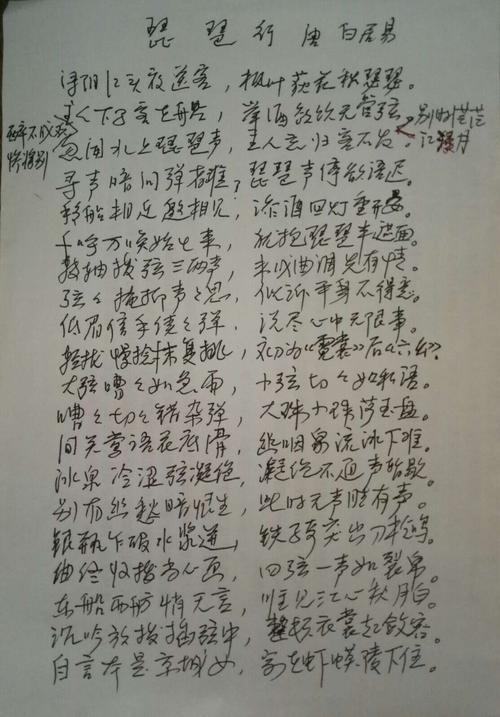 琵琶行 唐 白居易
浔阳江头夜送客，枫叶荻花秋瑟瑟。
主人下马客在船，举酒欲饮无管弦。
醉不成欢惨将别
别时茫茫江浸月
忽闻水上琵琶声，主人忘归客不发。
寻声暗问弹者谁，琵琶声停欲语迟。
移船相近邀相见，添酒回灯重开宴。
千呼万唤始出来，犹抱琵琶半遮面。
转轴拨弦三两声，未成曲调先有情。
弦弦掩抑声声思，似诉平生不得志。
低眉信手续续弹，说尽心中无限事。
轻拢慢捻抹复挑，初为《霓裳》后《六幺》。
大弦嘈々如急雨，小弦切々如私语。
嘈々切々错杂弹，大珠小珠落玉盘。
间关莺语花底滑，幽咽泉流冰下难。
冰泉冷涩弦凝绝，凝绝不通声暂歇。
别有幽愁暗恨生，此时无声胜有声。
银瓶乍破水浆迸，铁骑突出刀枪鸣。
曲终收拨当心画，四弦一声如裂帛。
东船西舫悄无言，唯见江心秋月白。
沉吟放拨插弦中，整顿衣裳起敛容。
自言本是京城女，家在虾蟆陵下住。